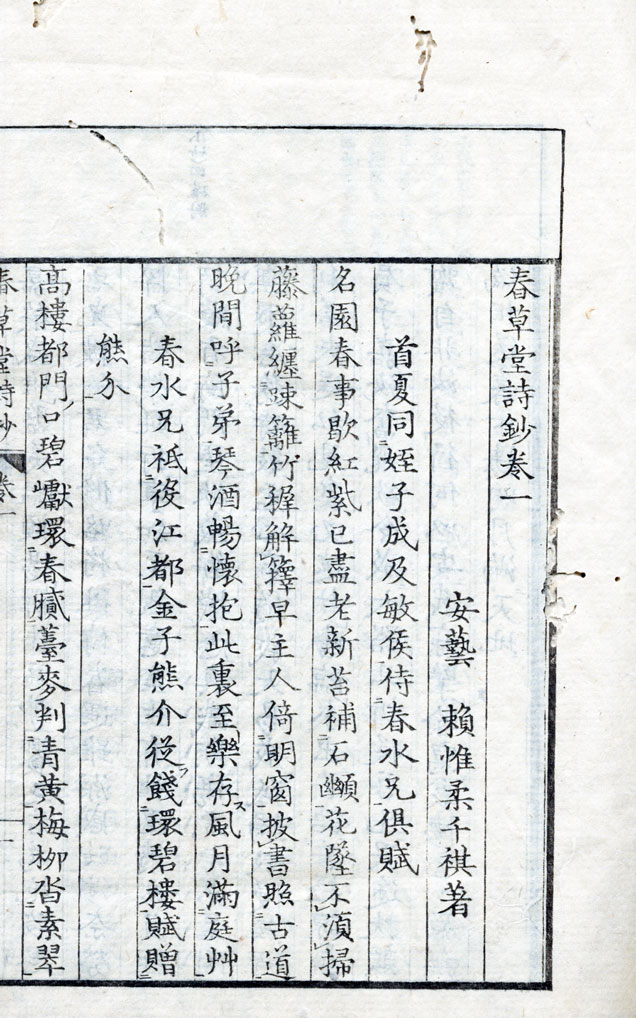 春草堂詩鈔卷一
安藝 賴惟柔千祺著
首夏同姪子成及敏侯侍春水兄俱賦
名園春事歇紅紫已盡老新苔補石花墜不須掃
藤蘿纏踈籬竹稺解籜早主人倚明窗披書照古道
晚間呼子弟琴酒暢懷抱此裏至樂存風月滿庭艸
春水兄祗役江都金子熊介從餞環碧樓賦贈
熊介
高樓都門口碧巘環春膩薹麥判青黃梅柳沓素翠
春草堂詩鈔 卷一